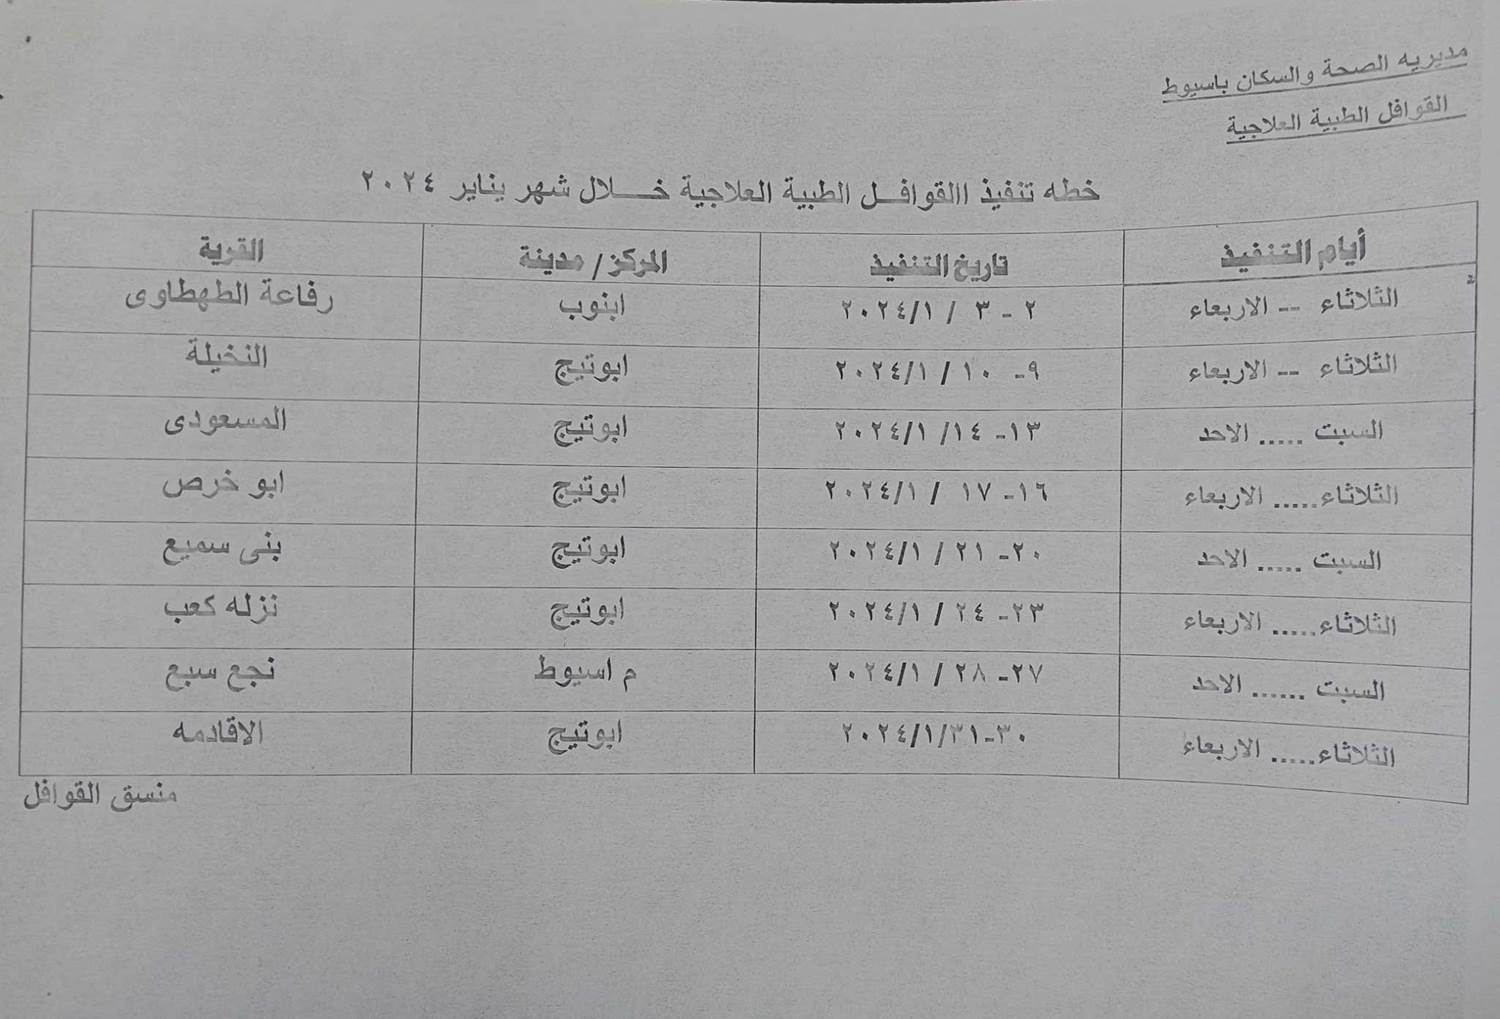 مديريه الصحة والسكان باسيوط
القوافل الطبية العلاجية
خطه تنفيذ االقوافــل الطبية العلاجية خــــلال شهر يناير ٢٠٢٤
أيام التنفيذ تاريخ التنفيذ المركز/ مدينة القرية
الثلاثاء -- الاربعاء ٢ - ٣ / ٢٠٢٤/١ ابنوب رفاعة الطهطاوى
الثلاثاء -- الاربعاء ٩- ١٠ / ٢٠٢٤/١ ابوتيج النخيلة
السبت ..... الاحد ١٣- ١٤/ ٢٠٢٤/١ ابوتيج المسعودى
الثلاثاء..... الاربعاء ١٦- ١٧ / ٢٠٢٤/١ ابوتيج ابو خرص
السبت ..... الاحد ٢٠- ٢١ / ٢٠٢٤/١ ابوتيج بنى سميع
الثلاثاء..... الاربعاء ٢٣- ٢٤ / ٢٠٢٤/١ ابوتيج نزله كعب
السبت ...... الاحد ٢٧- ٢٨ / ٢٠٢٤/١ م اسيوط نجع سبع
الثلاثاء..... الاربعاء ٣٠-٢٠٢٤/١/٣١ ابوتيج الاقادمه
منسق القوافل